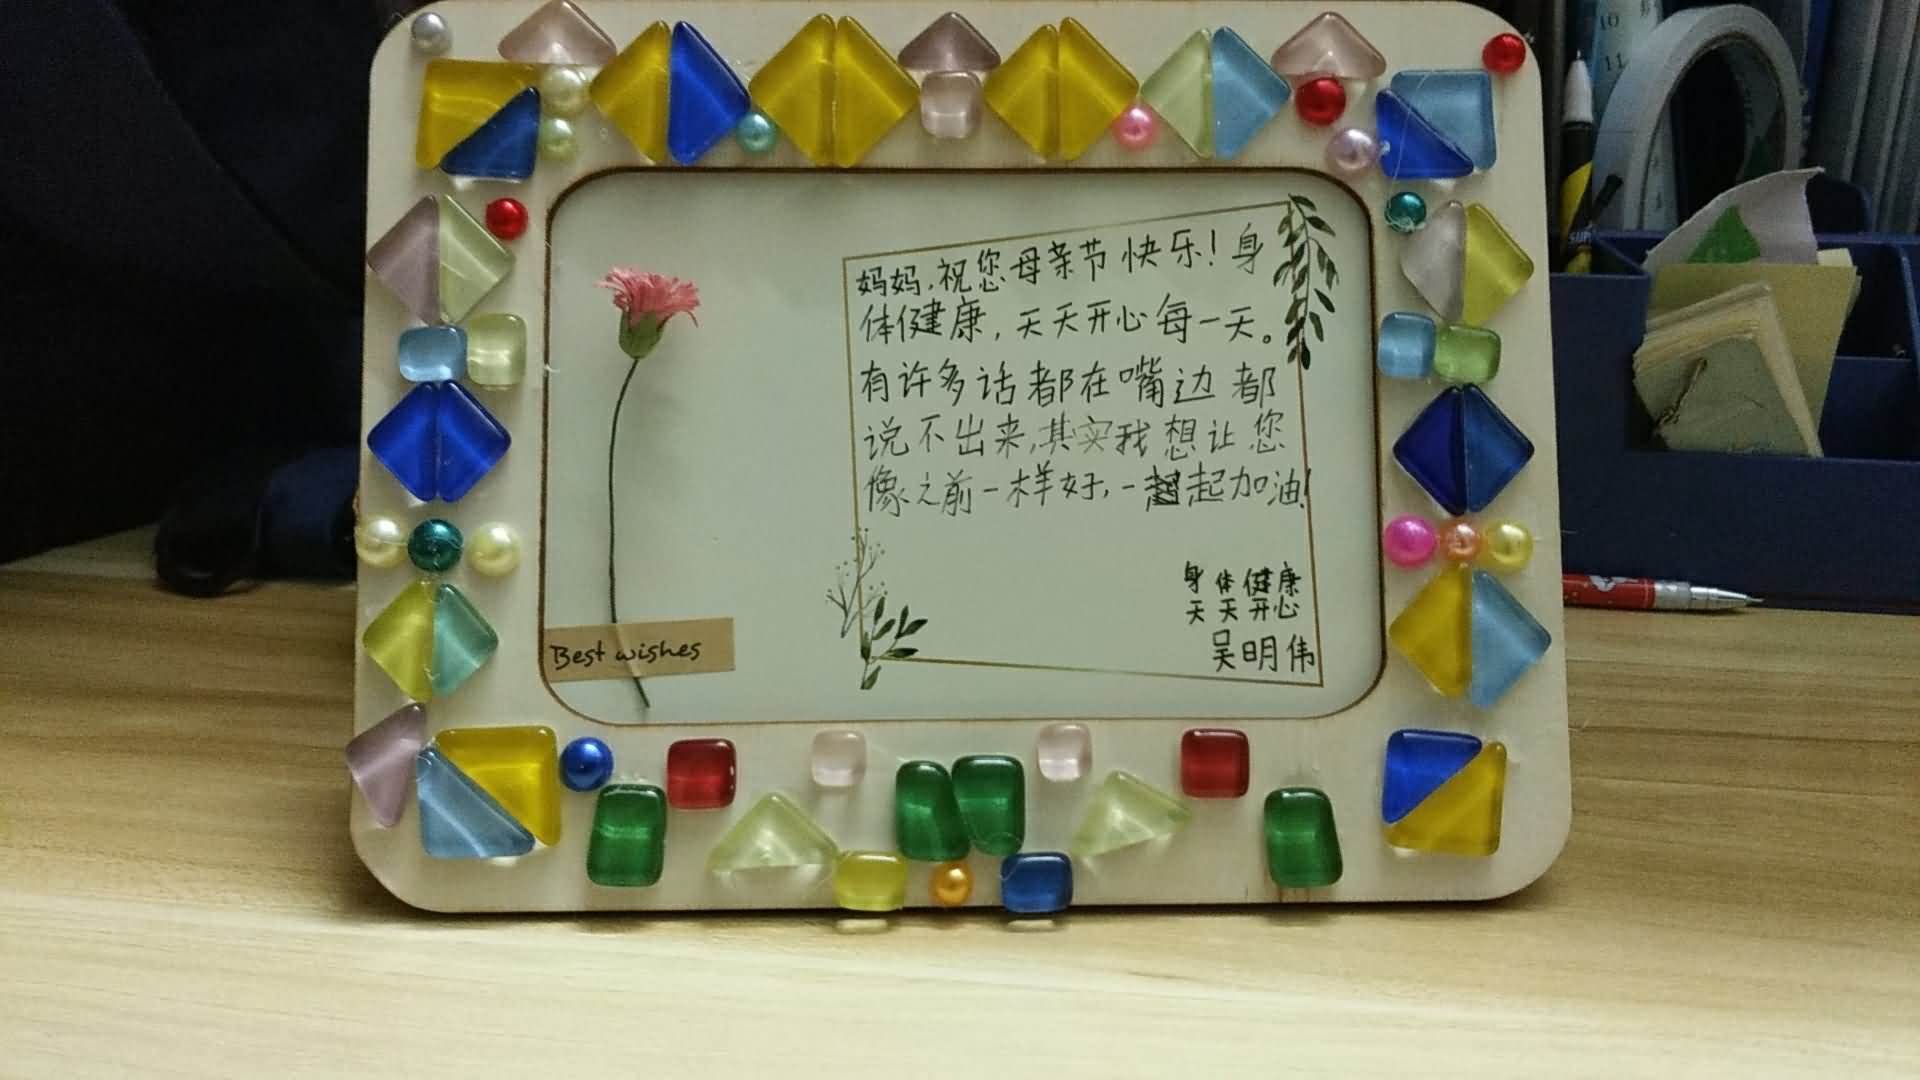 妈妈,祝您母亲节快乐!身
体健康,天天开心每一天。
有许多话都在嘴边都
说不出来,其实我想让您
像之前一样好,一起加油!
身体健康
天天开心
吴明伟
Best wishes
10
11